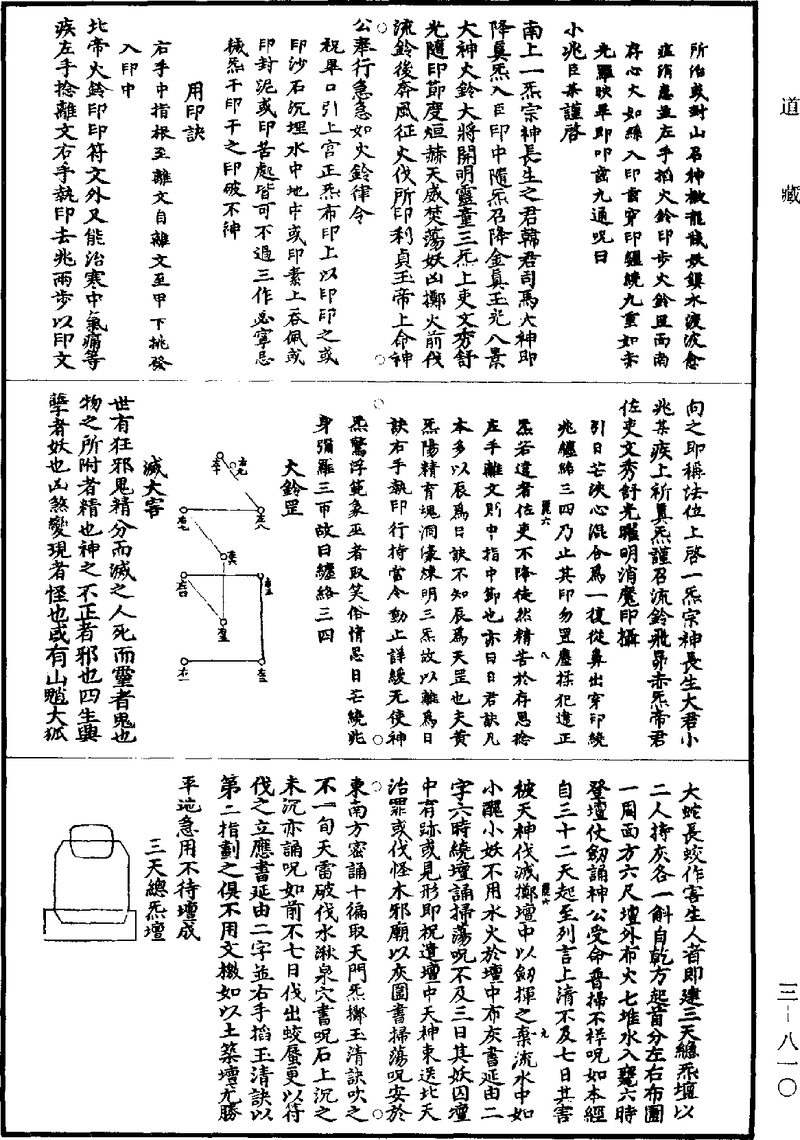 道藏
所治或對山召神檄龍馘妖鎮水渡波愈
疰消患並左手拍火鈴印步火鈴罡面南
存心火如絲入印當穿印纏繞九重如赤
光羅映畢即叩齒九通呪曰
小兆臣某謹啓
南上一炁宗神長生之君韓君司馬大神即
降真炁入臣印中隨炁召降金真玉光八景
大神火鈴大將開明靈童三炁上吏文秀舒
光隨印節度烜赫天威焚蕩妖凶擲火前伐
流鈴後奔風征火伐所印利貞玉帝上命神
公奉行急急如火鈴律令
祝畢口引上宫正炁布印上以印印之或
印沙石沉埋水中地中或印素上吞佩或
印封泥或印苦處皆可不過三作必寧忌
械炁干印干之印破不神
用印訣
右手中指根至離文自離文至甲下挑發
入印中
北帝火鈴印印符文外又能治寒中氣痛等
疾左手捻離文右手執印去兆兩步以印文
向之即稱法位上啓一炁宗神長生大君小
兆某疾上祈真炁謹召流鈴飛昴赤炁帝君
佐吏文秀舒光曜明消魔印攝
引日芒決心混合爲一復從鼻出穿印繞
兆纏絡三四乃止其印勿置塵揉犯違正
炁若違者佐吏不降徒然精苦於存思捻
左手離文則中指中節也亦曰日君訣凡
本多以辰爲日訣不知辰爲天罡也夫黄
炁陽精育塊洞濠煉明三炁故以離爲日
訣右手執印行持當令動止詳緩无使神
炁驚浮範象巫者取笑俗情思日芒繞兆
身彌羅三帀故曰纏絡三四
火鈴罡
滅大害
世有狂邪鬼精分而滅之人死而靈者鬼也
物之所附者精也神之不正者邪也四生與
孽者妖也凶煞變現者怪也或有山魈大狐
大蛇長蛟作害生人者即建三天總炁壇以
二人持灰各一斛自乾方起首分左右布圍
一周面方六尺壇外布火七堆水入甕六時
登壇仗劒誦神公受命普掃不祥呪如本經
自三十二天起至列言上清不及七日其害
被天神伐滅擲壇中以劒揮之棄流水中如
小醜小妖不用水火於壇中布灰書延由二
字六時繞壇誦掃蕩呪不及三日其妖囚壇
中有跡或見形即祝遣壇中天神束送北天
治罪或伐怪木邪廟以灰圍書掃蕩呪安於
東南方密誦十徧取天門炁擲玉清訣吹之
不一旬天雷破伐水湫泉穴書呪石上沉之
未沉亦誦呪如前不七日伐出蛟蜃更以符
伐之立應書延由二字並右手掐玉清訣以
第二指劃之俱不用文檄如以土築壇尤勝
平地急用不待壇成
三天總炁壇
三－八一〇